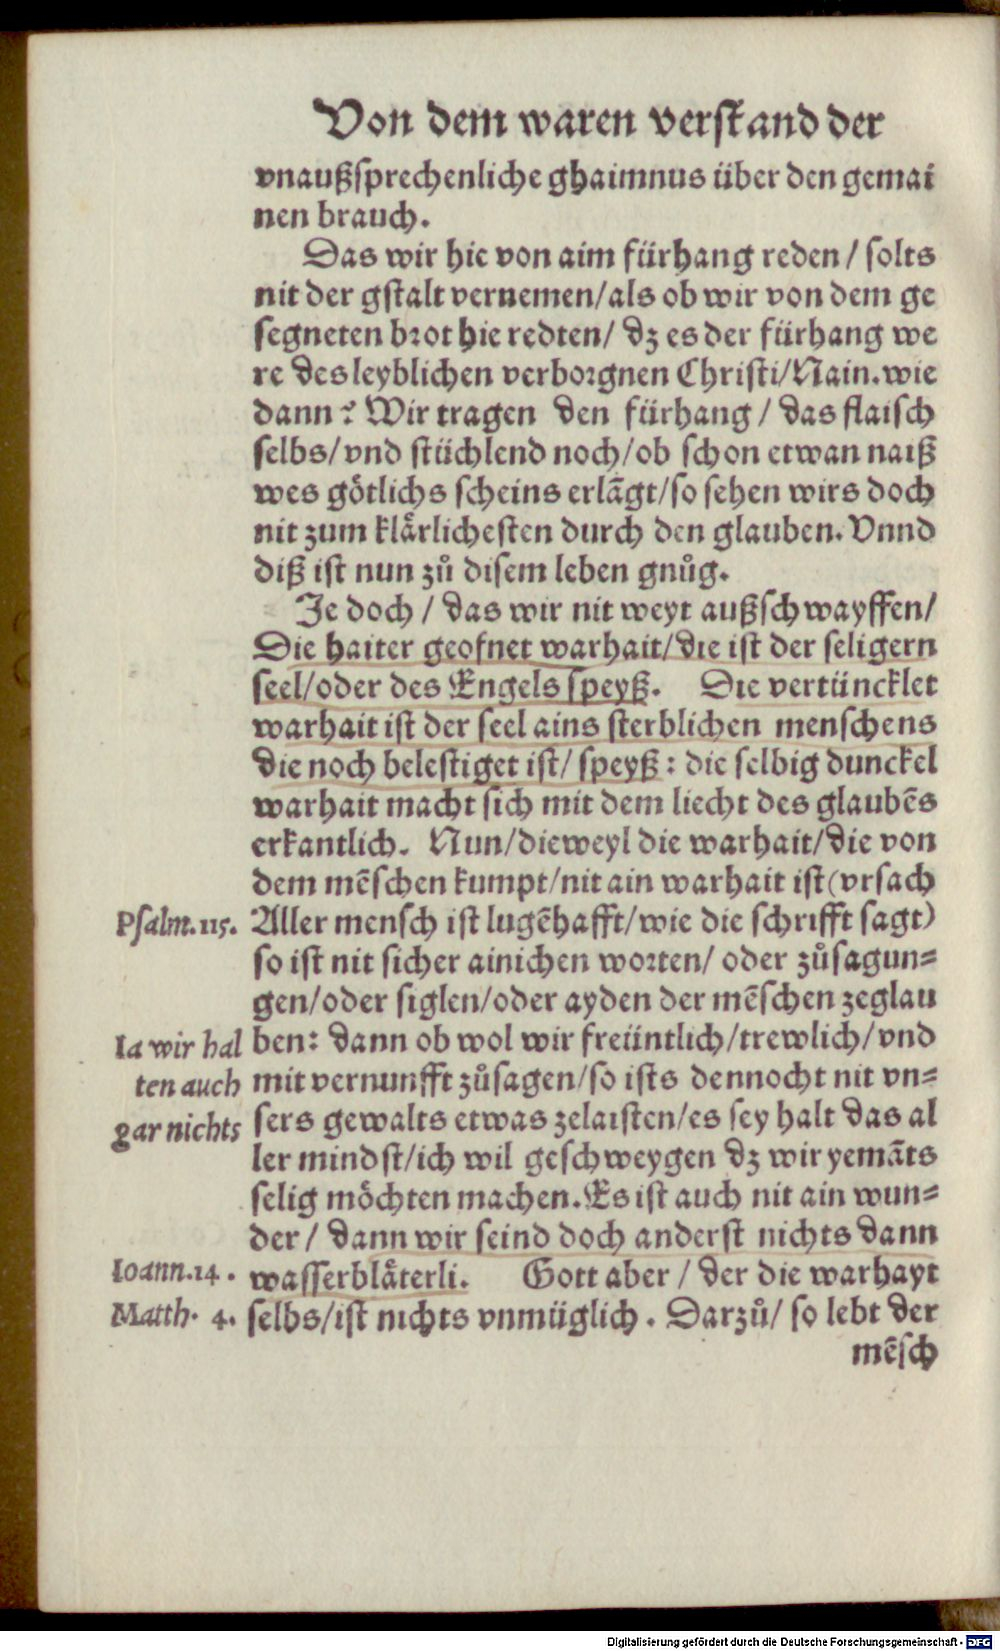 Von dem waren verstand der
vnaußsprechenliche ghaimnus über den gemai
nen brauch.
Das wir hie von aim fürhang reden / solts
nit der gstalt vernemen/als ob wir von dem ge
segneten brot hie redten/ dz es der fürhang we
re des leyblichen verborgnen Christi/Nain.wie
dann? Wir tragen den fürhang / das flaisch
selbs/vnd stüchlend noch/ob schon etwan naiß
wes götlichs scheins erlãgt/so sehen wirs doch
nit zum klärlichesten durch den glauben. Vnnd
diß ist nun zů disem leben gnůg.
Je doch / das wir nit weyt außschwayffen/
Die haiter geofnet warhait/die ist der seligern
seel/oder des Engels speyß. Die vertüncklet
warhait ist der seel ains sterblichen menschens
die noch belestiget ist/ speyß: die selbig dunckel
warhait macht sich mit dem liecht des glaubẽs
erkantlich. Nun/dieweyl die warhait/die von
dem mẽschen kumpt/nit ain warhait ist(vrsach
Psalm.115. Aller mensch ist lugẽhafft/wie die schrifft sagt)
so ist nit sicher ainichen worten/ oder zůsagun=
gen/oder siglen/oder ayden der mẽschen zeglau
Ia wir hal ben: dann ob wol wir freüntlich/trewlich/vnd
ten auch mit vernunfft zůsagen/so ists dennocht nit vn=
gar nichts sers gewalts etwas zelaisten/es sey halt das al
ler mindst/ich wil geschweygen dz wir yemãts
selig möchten machen.Es ist auch nit ain wun=
der / dann wir seind doch anderst nichts dann
Ioann.14. wasserbläterli. Gott aber / der die warhayt
Matth. 4. selbs/ist nichts vnmüglich. Darzů/ so lebt der
mẽsch
Digitalisierung gefördert durch die Deutsche Forschungsgemeinschaft - DFG